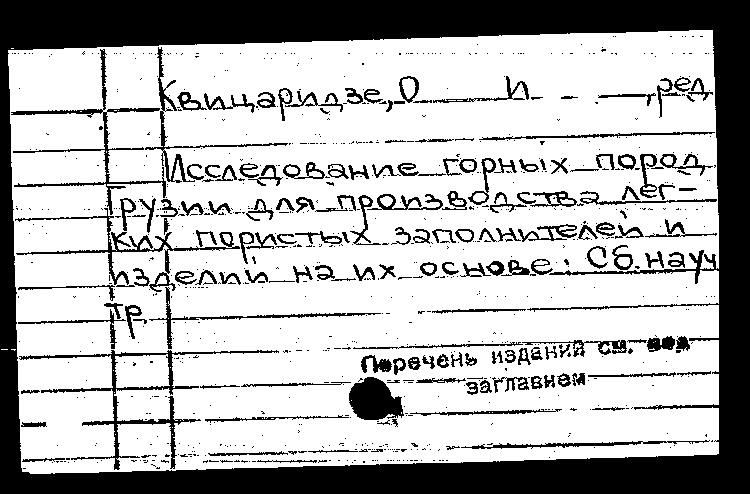 Квицаридзе, О И - —, ред
Исследование горных пород
Грузии для производства лег-
ких пористых заполнителей и
изделий на их основе: Сб. науч
тр
Перечень изданий см. под
заглавием